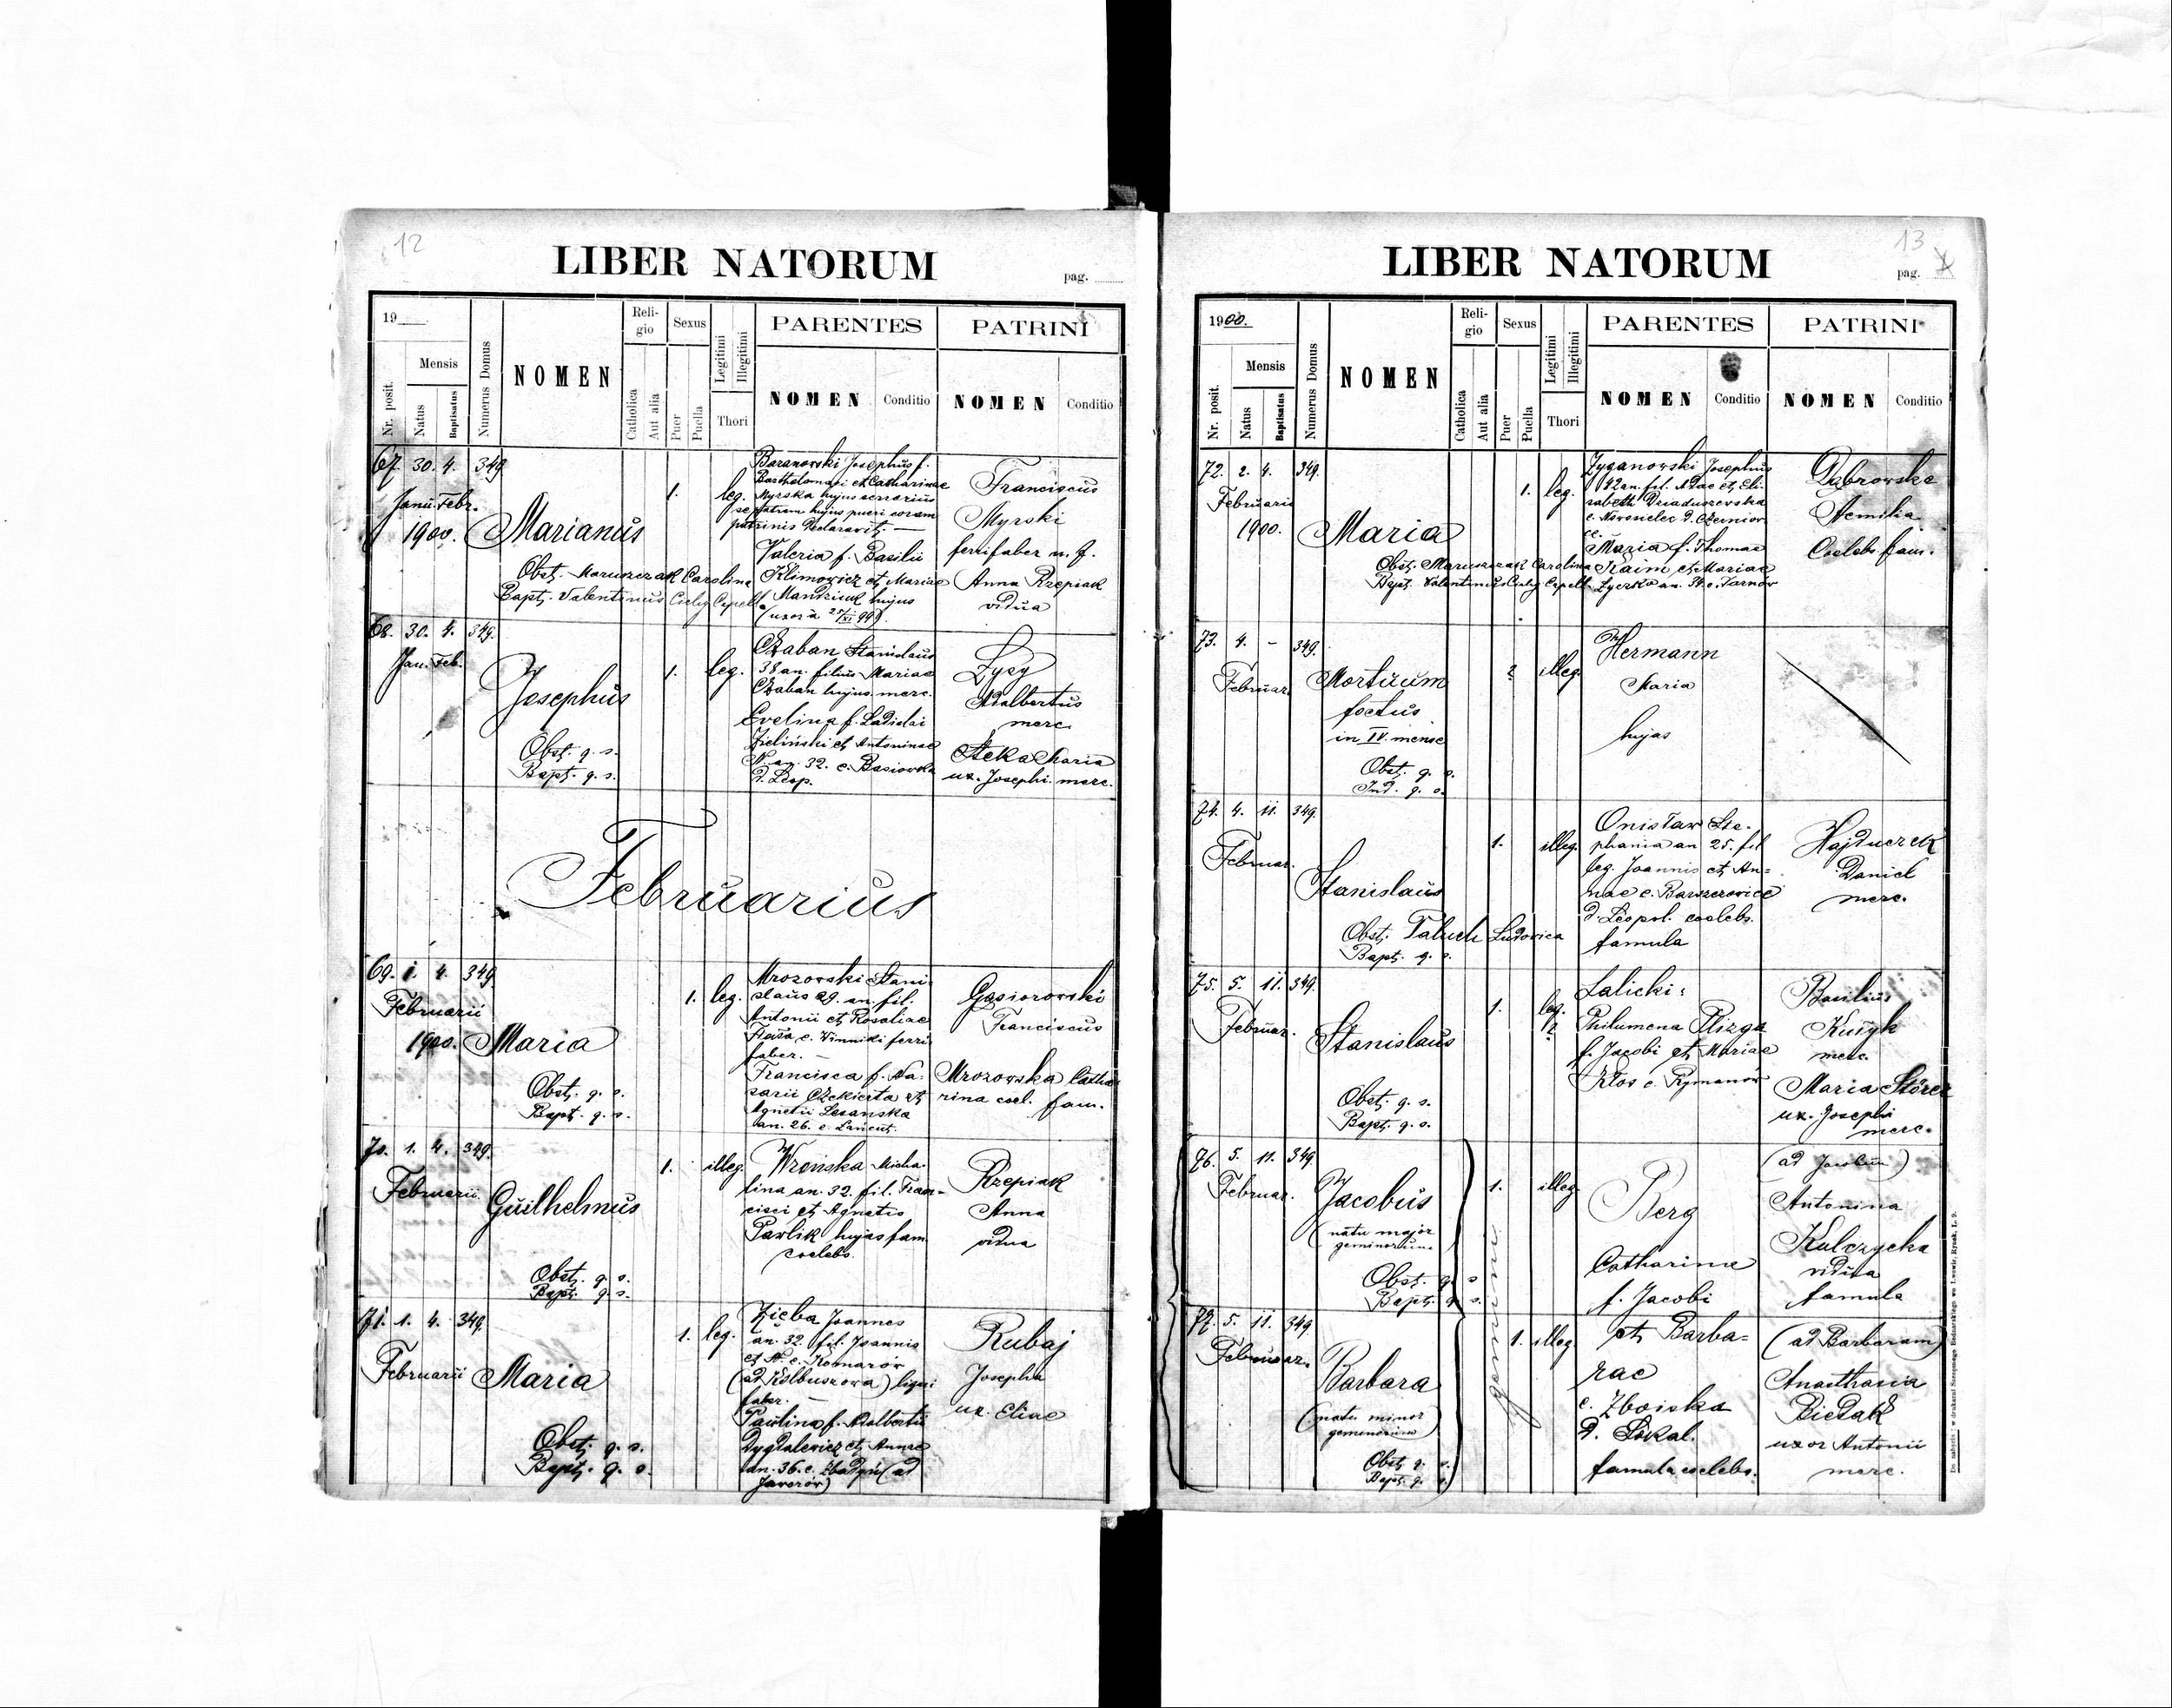 12
LIBER NATORUM
pag.
19
Mensis
Nr. posit.
Natus
Baptisatus
Numerus Domus
NOMEN
Reli-
gio
Catholica
Aut alia
Sexus
Puer
Puella
Legitimi
Illegitimi
Thori
PARENTES
NOMEN
Conditio
PATRINI
NOMEN
Conditio
67. 30. 4. 349.
Janu. Febr.
1900.
Marianus
Obst. Maruszczak Carolina
Bapt. Valentinus Cichy Capell.
1.
leg.
Baranowski Josephus f.
Bartholomaei et Catharinae
Myrska hujus serrarius
se patrem hujus pueri coram
patrinis declaravit. —
Valeria f. Basilii
Klimowicz et Mariae
hujus
Franciscus
Myrski
ferrifaber u. f.
Anna Rzepiak
vidua
68. 30. 4. 349.
Jan. Feb.
Josephus
Obst. q. s.
Bapt. q. s.
1.
leg.
Czaban Stanislaus
38 an. filius Mariae
Czaban hujus merc.
Evelina f. Ladislai
Zieliński et Antoninae
N. an. 32. e. Basiówka
d. Leop.
Łysy
Adalbertus
merc.
Maria
ux. Josephi merc.
Februarius
69. 1. 4. 349.
Februarii
1900.
Maria
Obst. q. s.
Bapt. q. s.
1.
leg.
Mrozowski Stani-
slaus 29. an. fil.
Antonii et Rosaliae
e. Winniki ferri
faber. —
Francisca f. Na-
zarii et
Agnetis
an. 26. e. Łańcut.
Gąsiorowski
Franciscus
Mrozowska Catha-
rina coel. fam.
70. 1. 4. 349.
Februarii
Guilhelmus
Obst. q. s.
Bapt. q. s.
1.
illeg.
Wrońska Micha-
lina an. 32. fil. Fran-
cisci et Agnetis
Pawlik hujas fam.
coelebs.
Rzepiak
Anna
vidua
71. 1. 4. 349.
Februarii
Maria
Obst. q. s.
Bapt. q. s.
1.
leg.
Zięba Joannes
an. 32. fil. Joannis
et N. e. Komarów
(ad Kolbuszowa) ligni
faber. —
Paulina f. Adalberti
Dygdalewicz et Annae
an. 36. e. (ad
Jaworów)
Rubaj
Josepha
ux. Eliae
13
LIBER NATORUM
pag.
1900.
Mensis
Nr. posit.
Natus
Baptisatus
Numerus Domus
NOMEN
Reli-
gio
Catholica
Aut alia
Sexus
Puer
Puella
Legitimi
Illegitimi
Thori
PARENTES
NOMEN
Conditio
PATRINI
NOMEN
Conditio
72. 2. 4. 349.
Februarii
1900.
Maria
Obst. Maruszczak Carolina
Bapt. Valentinus Cichy Capell.
1.
leg.
Zyganowski Josephus
42 an. fil. Adae et Eli-
sabeth Dziaduszewska
e. Nowosielec d.
Maria f. Thomae
Kaim et Mariae
Łyczko an. 34. e. Tarnów
Dąbrowska
Aemilia
Coelebs fam.
73. 4. - 349.
Februar.
Mortuum
foetus
in IV. mense
Obst. q. s.
Ind. q. s.
?
illeg.
Hermann
Maria
hujas
74. 4. 11. 349.
Februar.
Stanislaus
Obst. Paluch Ludovica
Bapt. q. s.
1.
illeg.
Onisław Ste-
phania an 25. fil
leg. Joannis et An-
nae e. Barszczowice
d. Leopol. coelebs.
famula
Hajduczek
Daniel
merc.
75. 5. 11. 349.
Februar.
Stanislaus
Obst. q. s.
Bapt. q. s.
1.
leg.
?
Lalicki:
Philumena Flizga
f. Jacobi et Mariae
Kłos e. Rymanów
Basilius
Kusyk
merc.
Maria Störer
ux. Josephi
merc.
76. 5. 11. 349.
Februar.
Jacobus
(natu major
geminorum.
Obst. q. s.
Bapt. q. s.
1.
illeg.
Berg
Catharina
f. Jacobi
(ad Jacobum)
Antonina
Kulczycka
vidua
famula
gominum
77. 5. 11. 349.
Februar.
Barbara
(natu minor
geminorum)
Obst. q. s.
Bapt. q. s.
1.
illeg.
et Barba-
rae
e. Zboiska
d. Sokal.
famula coelebs.
(ad Barbaram)
Anasthasia
Biedak
uxor Antonii
merc.